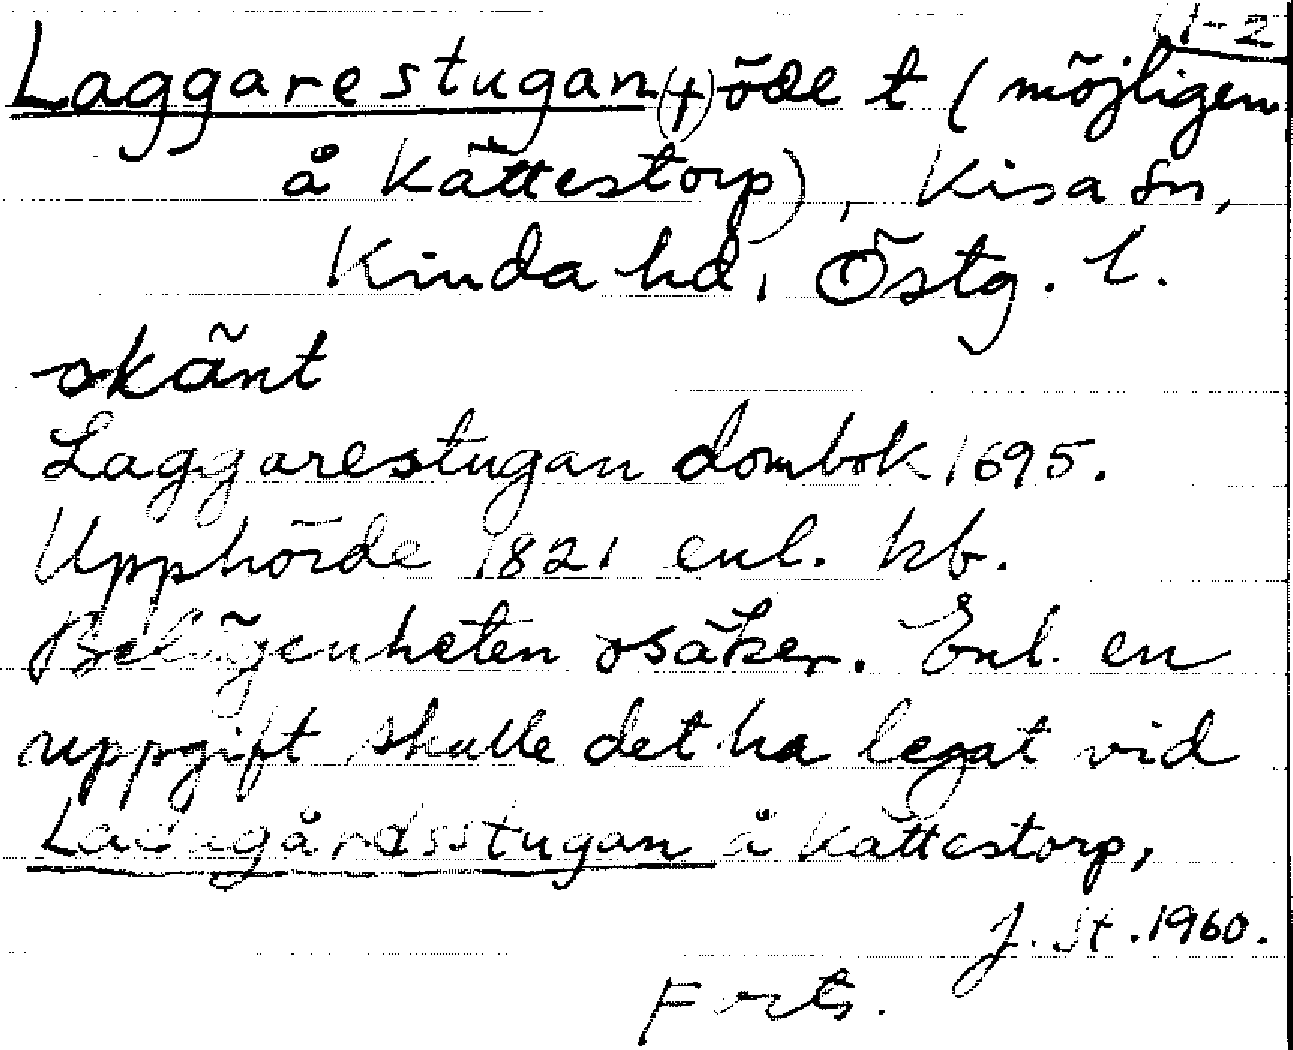 1-2
Laggarestugan (†) öde t (möjligen
å Kättestorp), Kisa sn,
Kinda hd, Östg. l.
okänt
Laggarestugan dombok 1695.
Upphörde 1821 enl. kb.
Belägenheten osäker. Enl. en
uppgift skulle det ha legat vid
Ladugårdsstugan å Kättestorp,
J. St. 1960.
Forts.